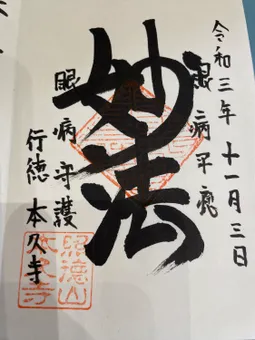 令和三年十一月三日
眼病平癒
妙法
眼病守護
行徳 本久寺
照徳山
本久寺